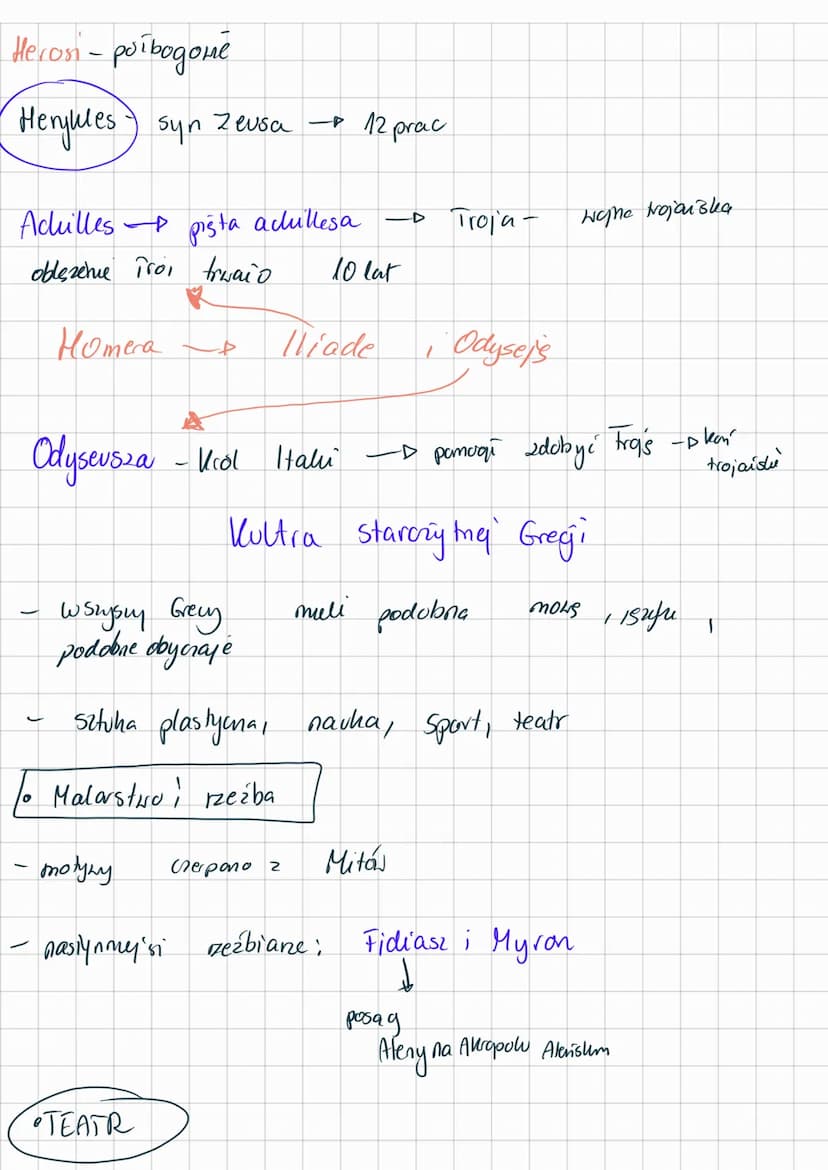 Herosi – półbogowie
Herykles – syn Zeusa → 12 prac
Achilles → pięta achillesa → Troja – wojna trojańska
oblężenie Troi trwało 10 lat
Homera → Iliade i Odyseję
Odyseusza – Król Itaki → pomógł zdobyć Troję → koń
trojański
Kultra starożytnej Grecji
– wszyscy Grecy mieli podobną mowę, język,
podobne obyczaje
– sztuka plastyczna, nauka, sport, teatr
• Malarstwo i rzeźba
– motywy czerpano z Mitów
– nasłynniejsi rzeźbiarze: Fidiasz i Myron
↓
posąg
Ateny na Akropolu Ateńskim
• TEATR